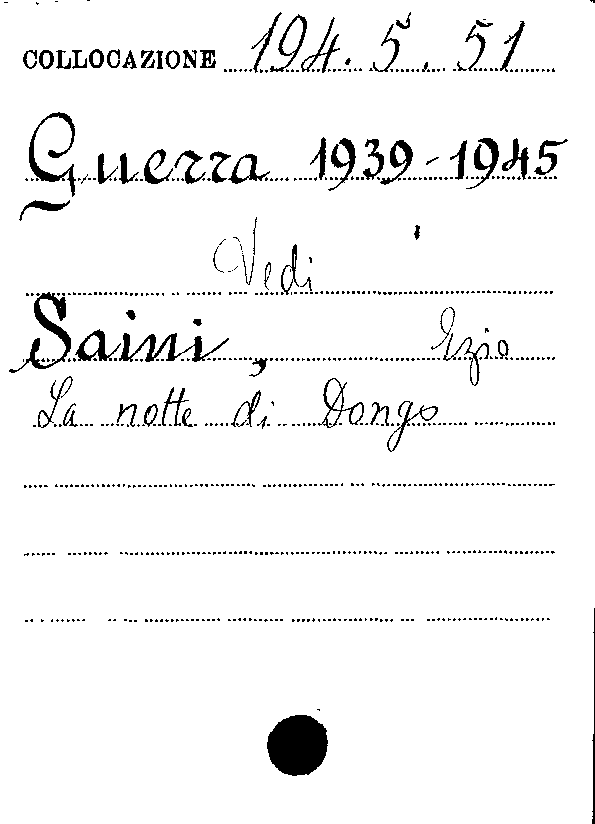 COLLOCAZIONE 194. 5. 51
Guerra 1939-1945
Vedi
Saini, Ezio
La notte di Dongo